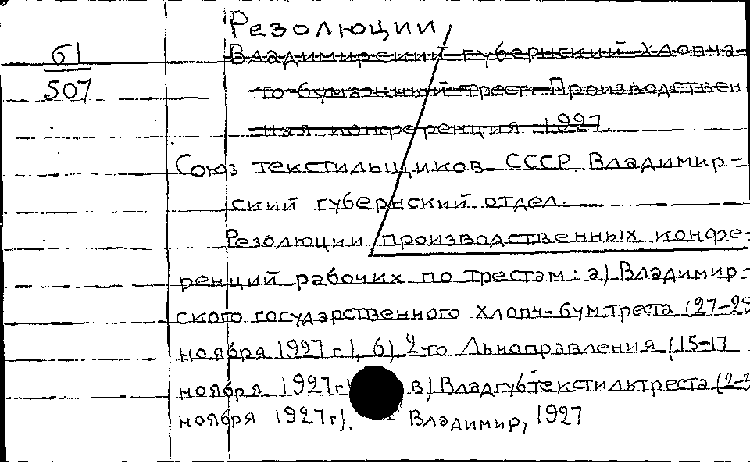 Резолюции
61
507
Владимирский губернский Хлопча-
то-бумажный трест. Производствен
ная конференция 1927
Союз текстильщиков СССР. Владимир-
ский губернский отдел.
Резолюции производственных конфе-
ренций рабочих по трестам: а) Владимир-
ского государственного хлопч-бум.треста (27-29
ноября 1927 г), б) 2го Льноправления (15-17
ноября 1927г) в) Владгубтекстильтреста (2-3
ноября 1927г). Владимир, 1927